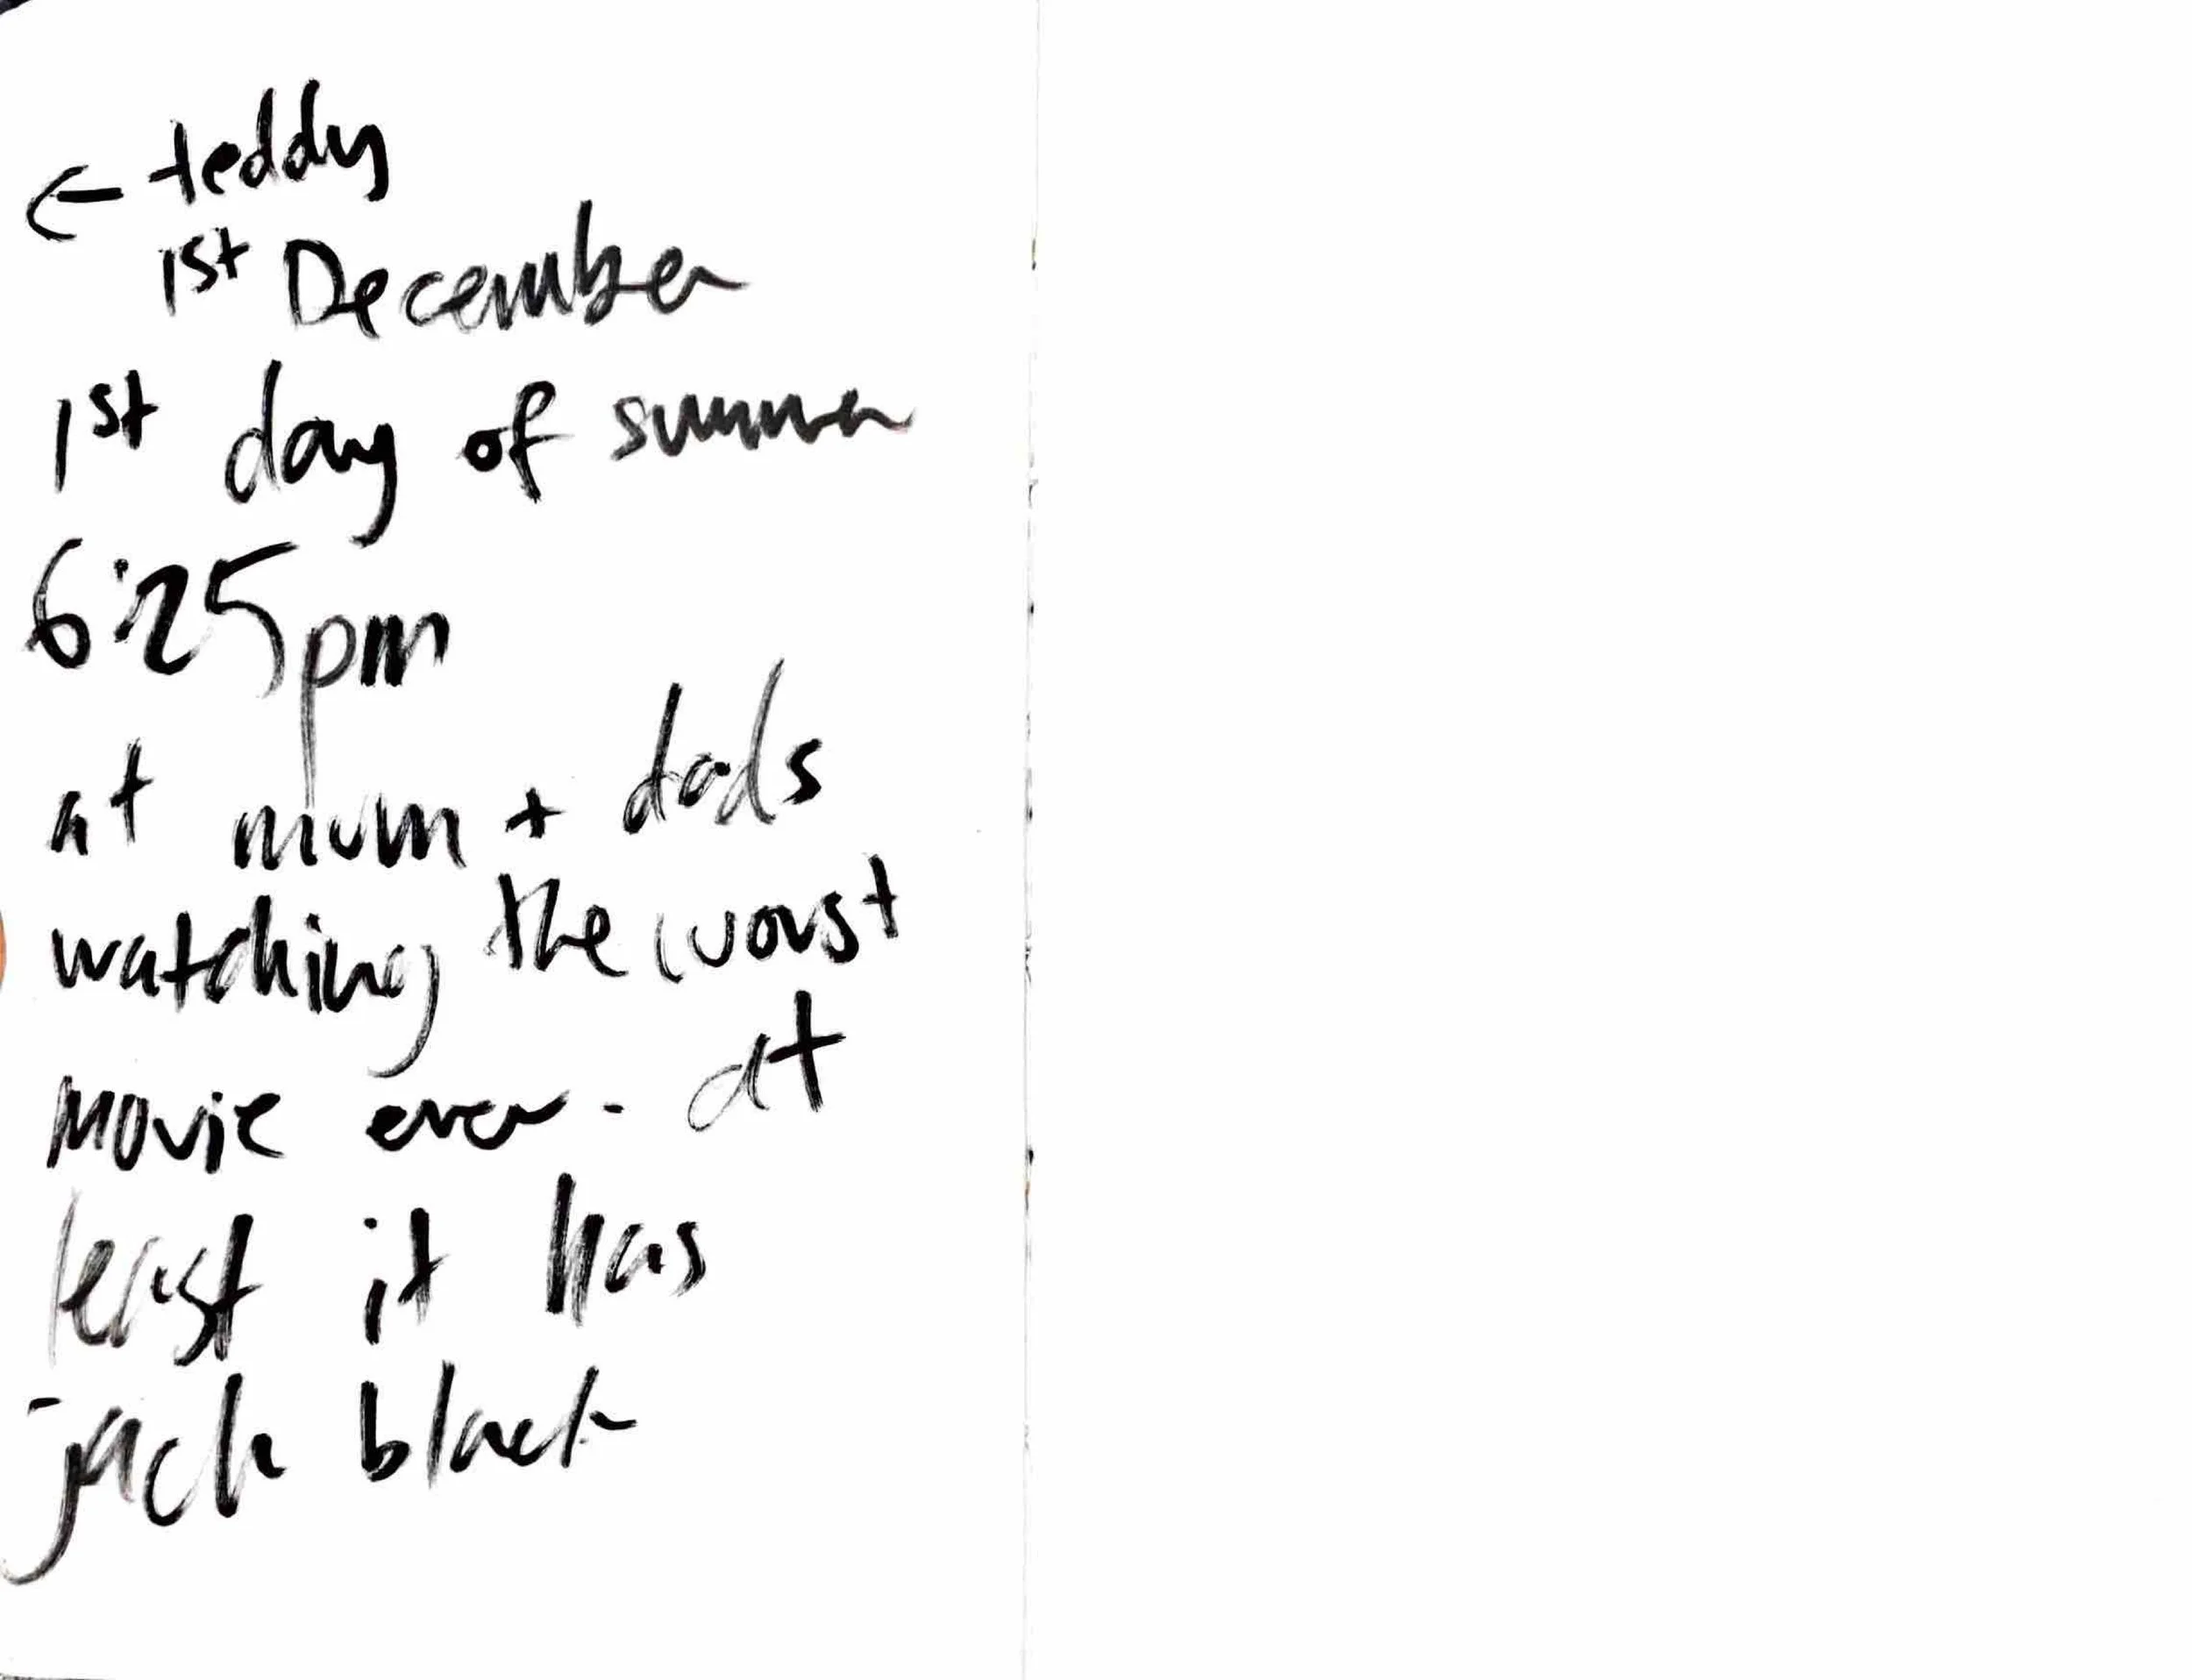 ← teddy
1st December
1st day of summer
6:25pm
at mum + dads
watching the worst
movie ever. at
least it has
jack black